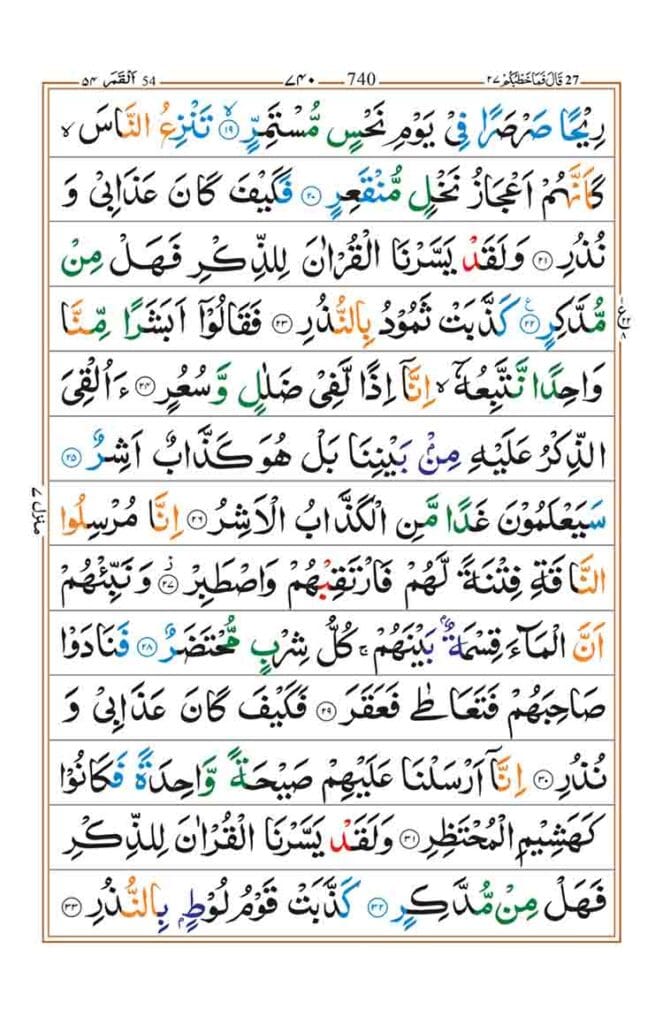 27 قَالَ فَمَا خَطْبُكُمْ ۲۷ 740 ۷۴۰ 54 اَلْقَمَر ۵۴
رِيْحًا صَرْصَرًا فِىْ يَوْمِ نَحْسٍ مُّسْتَمِرٍّ ۙ‏ ﴿۱۹﴾ تَنْزِعُ النَّاسَ ۙ
كَاَنَّهُمْ اَعْجَازُ نَخْلٍ مُّنْقَعِرٍ ﴿۲۰﴾ فَكَيْفَ كَانَ عَذَابِىْ وَ
نُذُرِ ﴿۲۱﴾ وَلَقَدْ يَسَّرْنَا الْقُرْاٰنَ لِلذِّكْرِ فَهَلْ مِنْ
مُّدَّكِرٍ ﴿۲۲﴾ كَذَّبَتْ ثَمُوْدُ بِالنُّذُرِ ﴿۲۳﴾ فَقَالُوْۤا اَبَشَرًا مِّنَّا
وَاحِدًا نَّتَّبِعُهٗۤ ۙ اِنَّاۤ اِذًا لَّفِىْ ضَلٰلٍ وَّ سُعُرٍ ﴿۲۴﴾ ءَاُلْقِىَ
الذِّكْرُ عَلَيْهِ مِنْۢ بَيْنِنَا بَلْ هُوَ كَذَّابٌ اَشِرٌ ﴿۲۵﴾
سَيَعْلَمُوْنَ غَدًا مَّنِ الْكَذَّابُ الْاَشِرُ ﴿۲۶﴾ اِنَّا مُرْسِلُوا
النَّاقَةِ فِتْنَةً لَّهُمْ فَارْتَقِبْهُمْ وَاصْطَبِرْ ﴿۲۷﴾ وَنَبِّئْهُمْ
اَنَّ الْمَآءَ قِسْمَةٌۢ بَيْنَهُمْ ۚ كُلُّ شِرْبٍ مُّحْتَضَرٌ ﴿۲۸﴾ فَنَادَوْا
صَاحِبَهُمْ فَتَعَاطٰى فَعَقَرَ ﴿۲۹﴾ فَكَيْفَ كَانَ عَذَابِىْ وَ
نُذُرِ ﴿۳۰﴾ اِنَّاۤ اَرْسَلْنَا عَلَيْهِمْ صَيْحَةً وَّاحِدَةً فَكَانُوْا
كَهَشِيْمِ الْمُحْتَظِرِ ﴿۳۱﴾ وَلَقَدْ يَسَّرْنَا الْقُرْاٰنَ لِلذِّكْرِ
فَهَلْ مِنْ مُّدَّكِرٍ ﴿۳۲﴾ كَذَّبَتْ قَوْمُ لُوْطٍۭ بِالنُّذُرِ ﴿۳۳﴾
منزل ۷